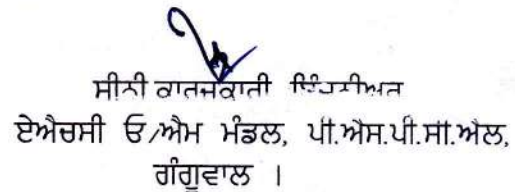 ਸੀਨੀ ਕਾਰਜਕਾਰੀ ਇੰਜੀਨੀਅਰ
ਏਐਚਸੀ ਓ/ਐਮ ਮੰਡਲ, ਪੀ.ਐਸ.ਪੀ.ਸੀ.ਐਲ,
ਗੰਗੂਵਾਲ ।